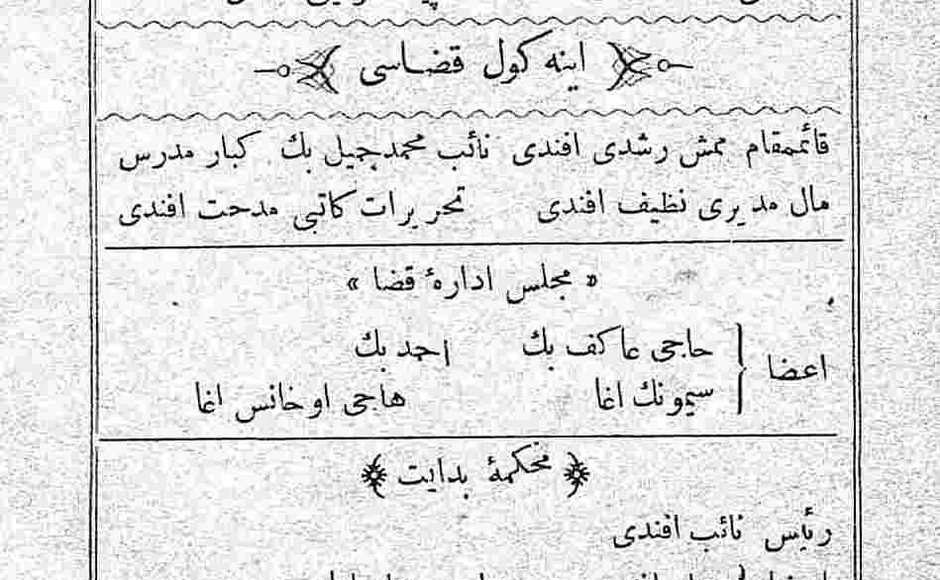 اینه كول قضاسی
قائممقام ممش رشدی افندی نائب محمد جمیل بك كبار مدرس
مال مدیری نظیف افندی تحریرات كاتبی مدحت افندی
« مجلس ادارهٔ قضا »
اعضا { حاجی عاكف بك احمد بك
سیمونك اغا هاجی اوخانس اغا
محكمهٔ بدایت
رئیس نائب افندی